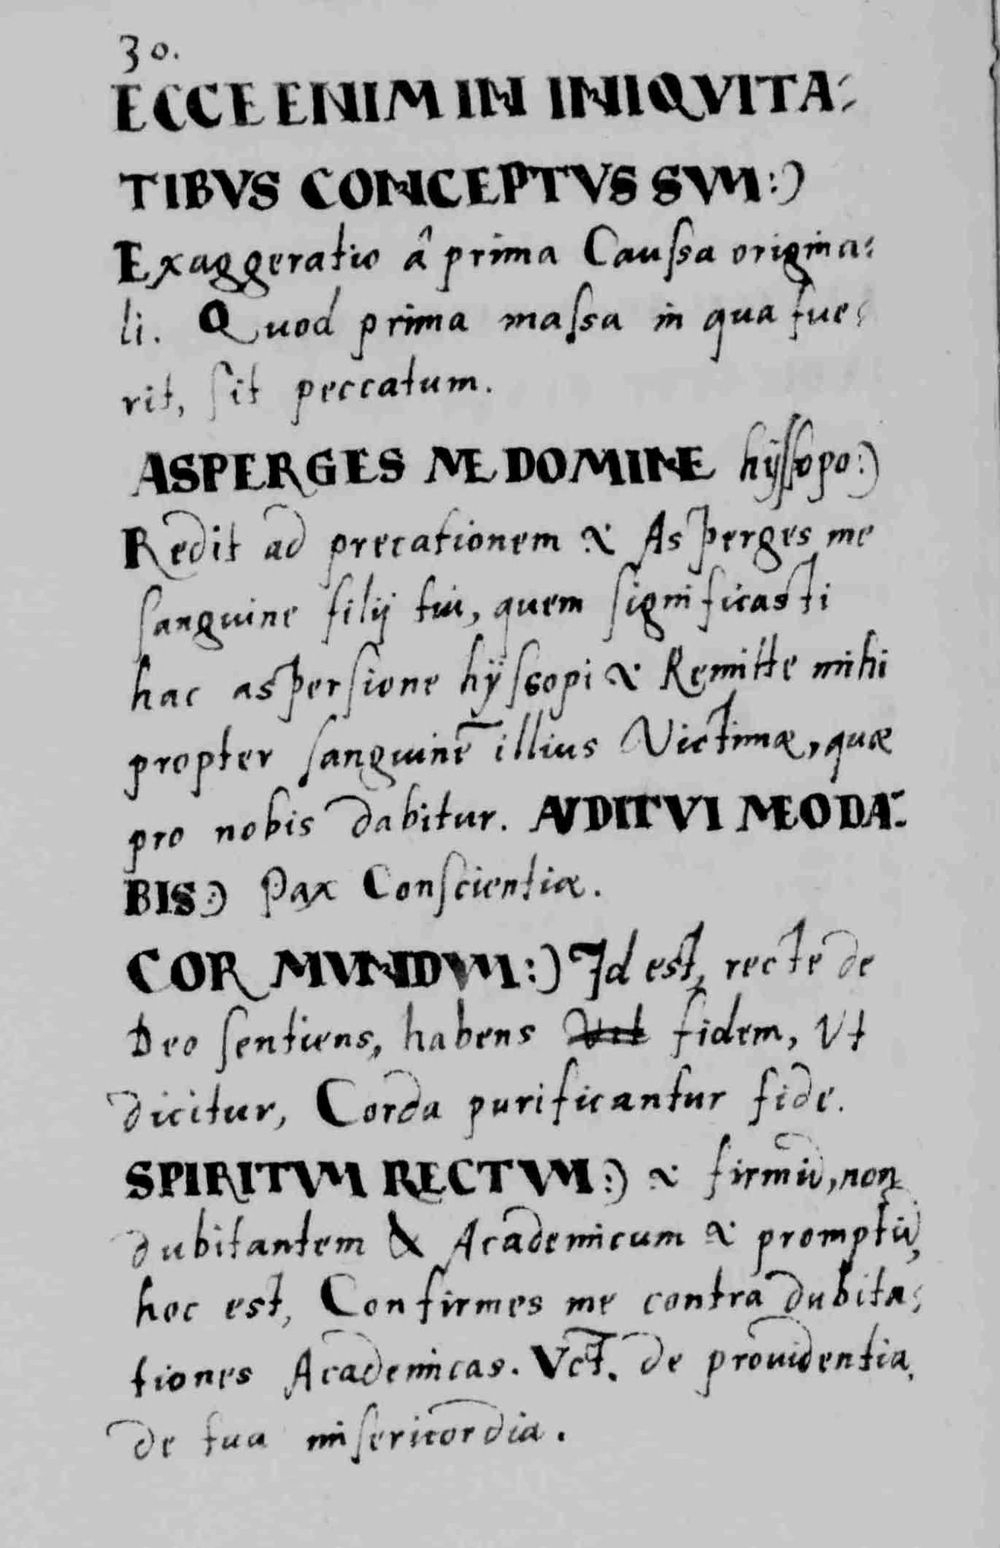 30.
ECCE ENIM IN INIQVITA-
TIBVS CONCEPTVS SVM:)
Exaggeratio â prima Caussa origina-
li. Quod prima massa in qua fue-
rit, sit peccatum.
ASPERGES ME DOMINE hÿssopo:)
Redit ad precationem & Asperges me
sanguine filij tui, quem significasti
hac aspersione hÿssopi & Remitte mihi
propter sanguinē illius Victimæ, quæ
pro nobis dabitur. AVDITVI MEO DA-
BIS:) Pax Conscientiæ.
COR MVNDVM:) Id est, recte de
Deo sentiens, habens fidem, Vt
dicitur, Corda purificantur fide.
SPIRITVM RECTVM:) & firmū, non
dubitantem & Academicum & promptū,
hoc est, Confirmes me contra dubita-
tiones Academicas. Vt. de prouidentia,
de tua misericordia.